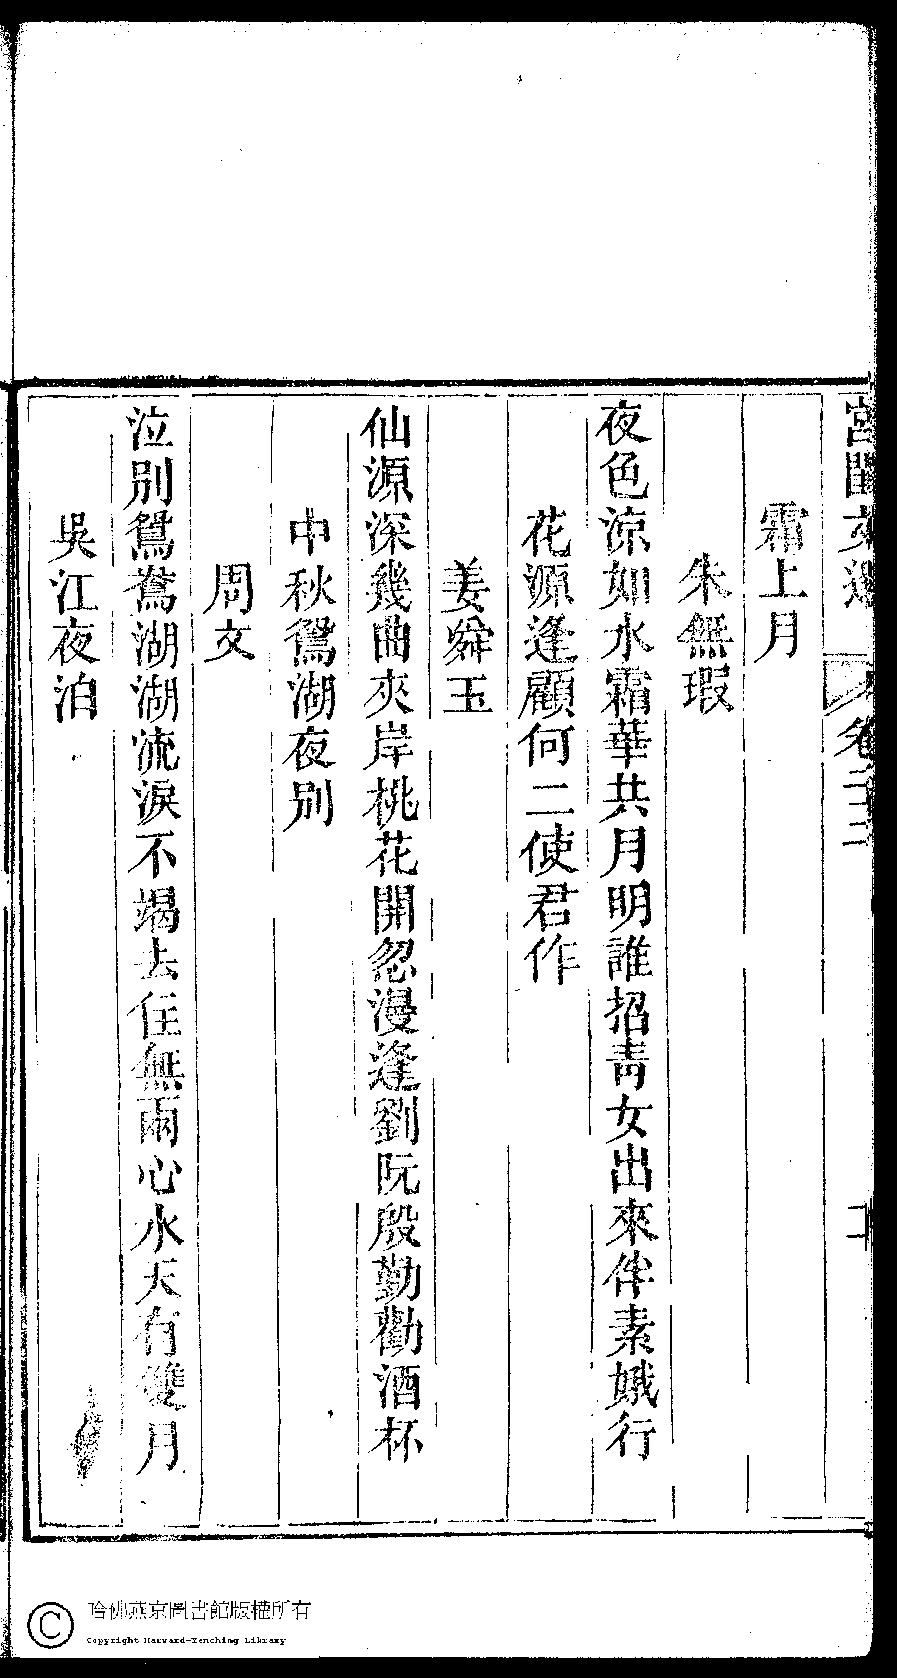 宮閨文選 卷二十二
霜上月
朱無瑕
夜色涼如水霜華共月明誰招青女出來伴素娥行
花源逢顧何二使君作
姜舜玉
仙源深幾曲夾岸桃花開忽漫逢劉阮殷勤勸酒杯
中秋鴛湖夜別
周文
泣別鴛鴦湖湖流淚不竭去住無兩心水天有雙月
吳江夜泊
哈佛燕京圖書館版權所有
Copyright Harvard-Yenching Library